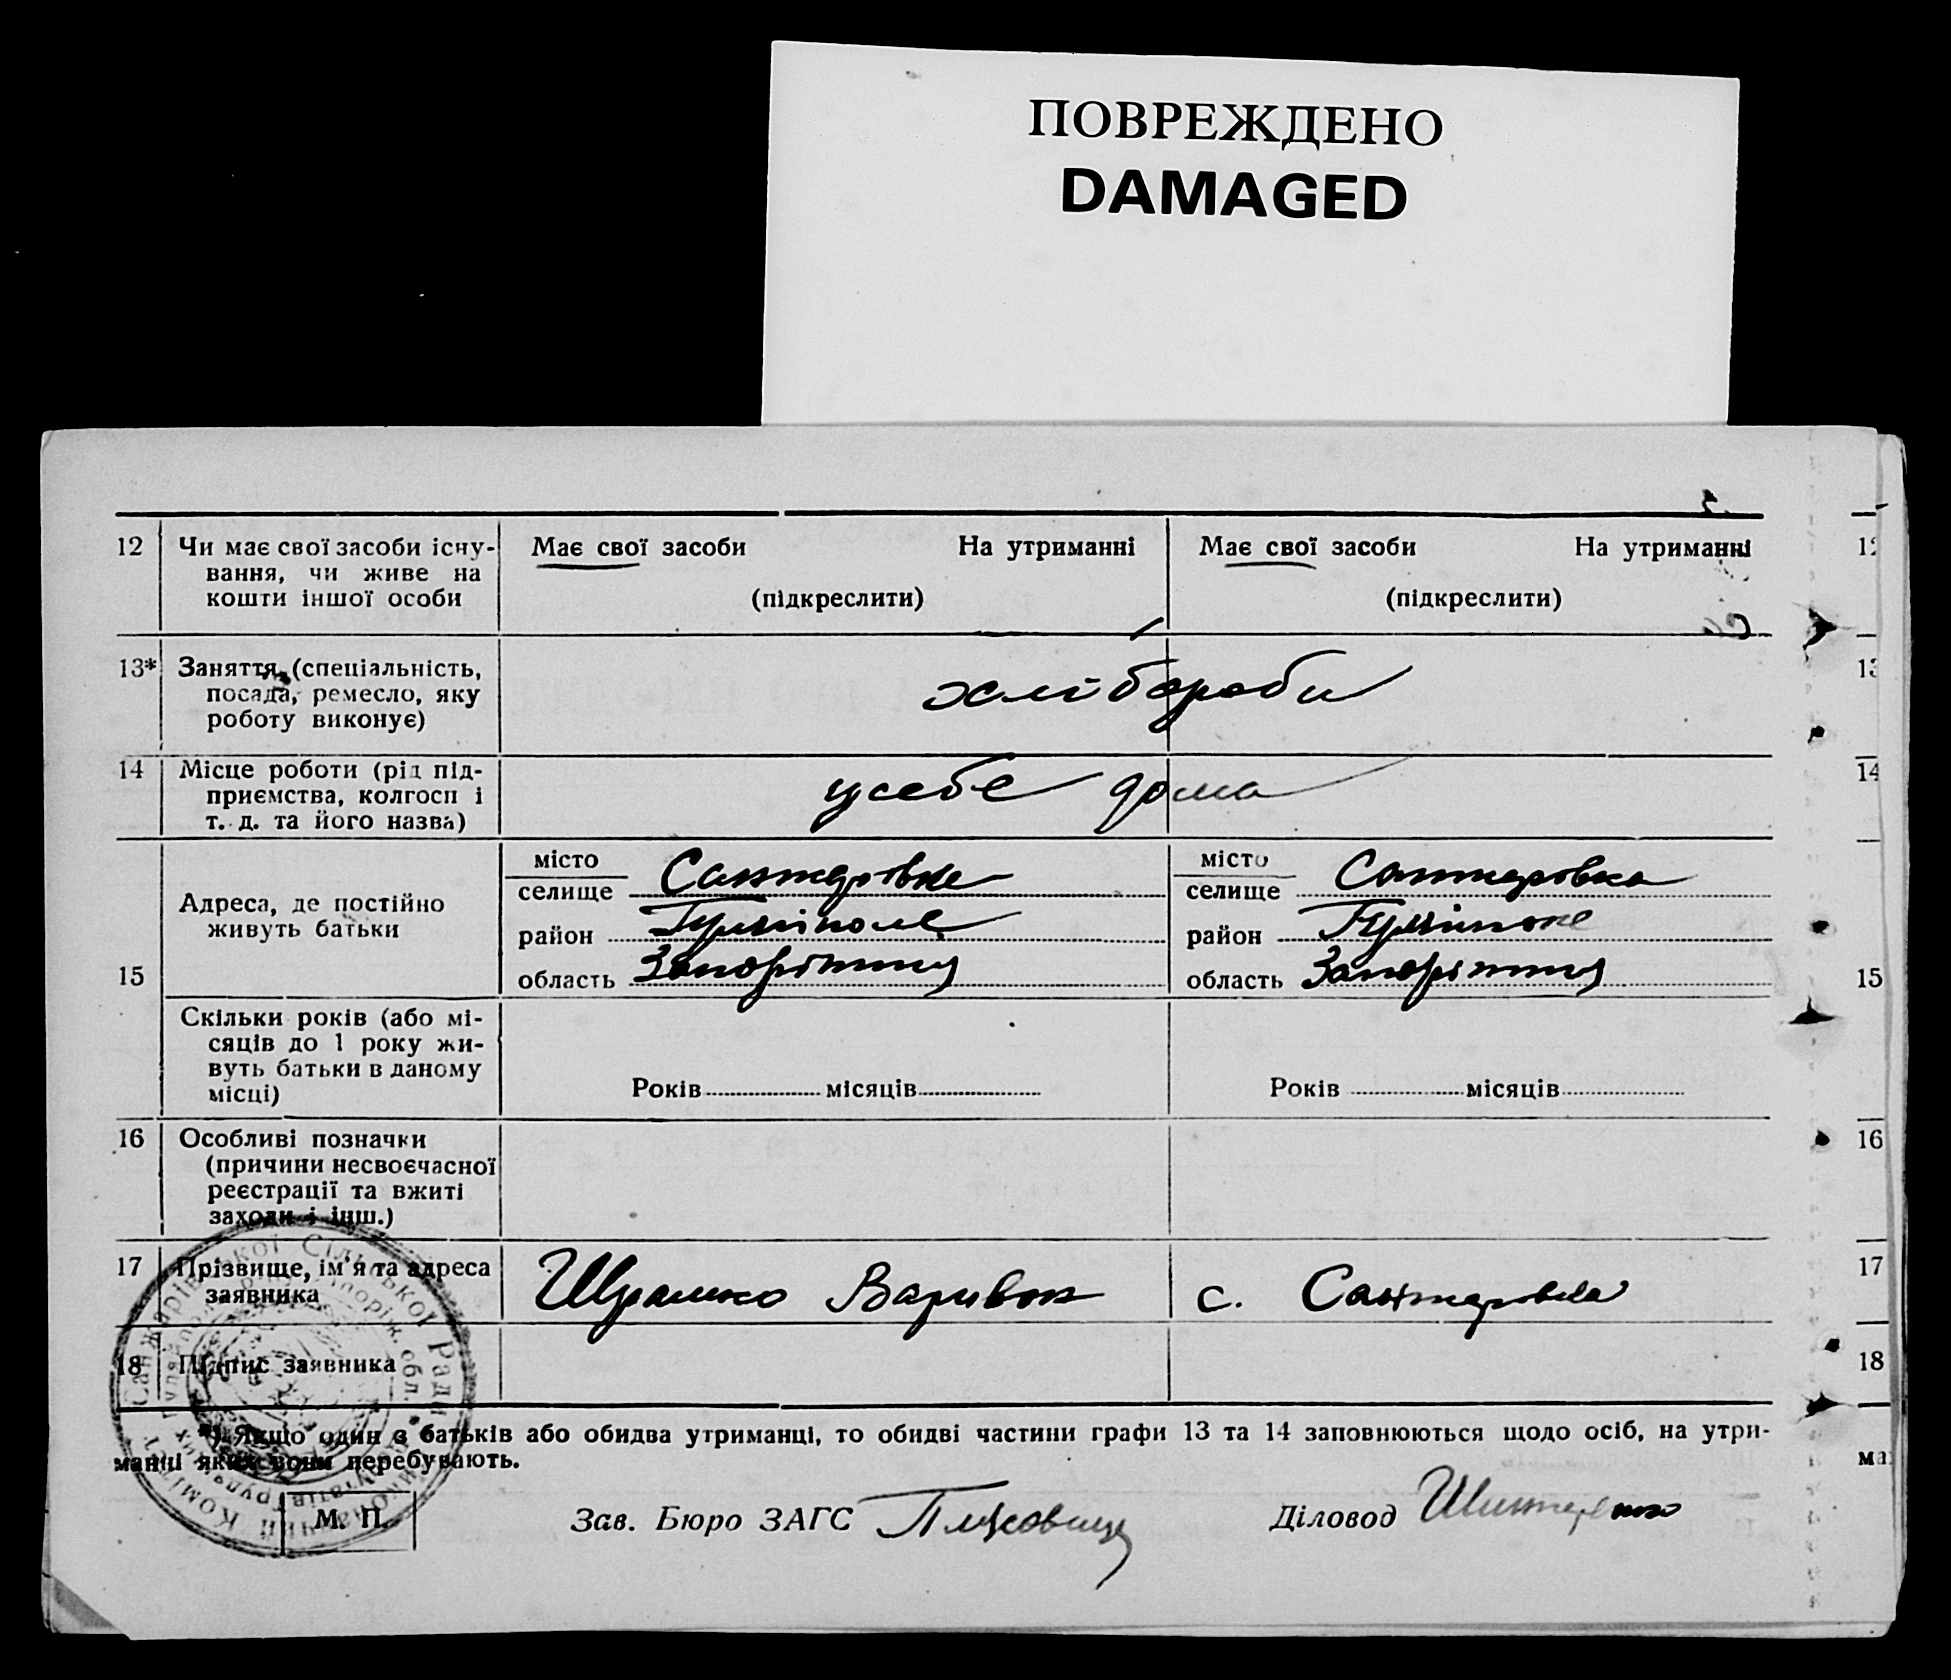 ПОВРЕЖДЕНО
DAMAGED
12 Чи має свої засоби існу- Має свої засоби На утриманні Має свої засоби На утриманні
вання, чи живе на
кошти іншої особи (підкреслити) (підкреслити)
13* Заняття (спеціальність,
посада, ремесло, яку хлібороби
роботу виконує)
14 Місце роботи (рід під- 14
приємства, колгосп і усебе дома
т. д. та його назва)
місто Санжаровка місто Санжаровка
селище селище
Адреса, де постійно
живуть батьки район Гуляйполе район Гуляйполе
15 область Запоріжжя область Запоріжжя 15
Скільки років (або мі-
сяців до 1 року жи-
вуть батьки в даному
місці) Років місяців Років місяців
16 Особливі позначки 16
(причини несвоєчасної
реєстрації та вжиті
заходи і інш.)
17 Прізвище, ім'я та адреса Шрамко с. Санжаровка 17
заявника
18 Підпис заявника 18
*) Якщо один з батьків або обидва утриманці, то обидві частини графи 13 та 14 заповнюються щодо осіб, на утри-
манні яких вони перебувають. ма
М. П. Зав. Бюро ЗАГС Діловод